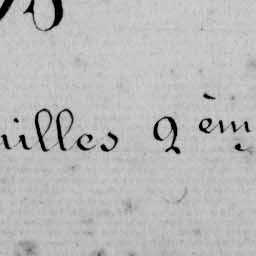 illes 2 èm